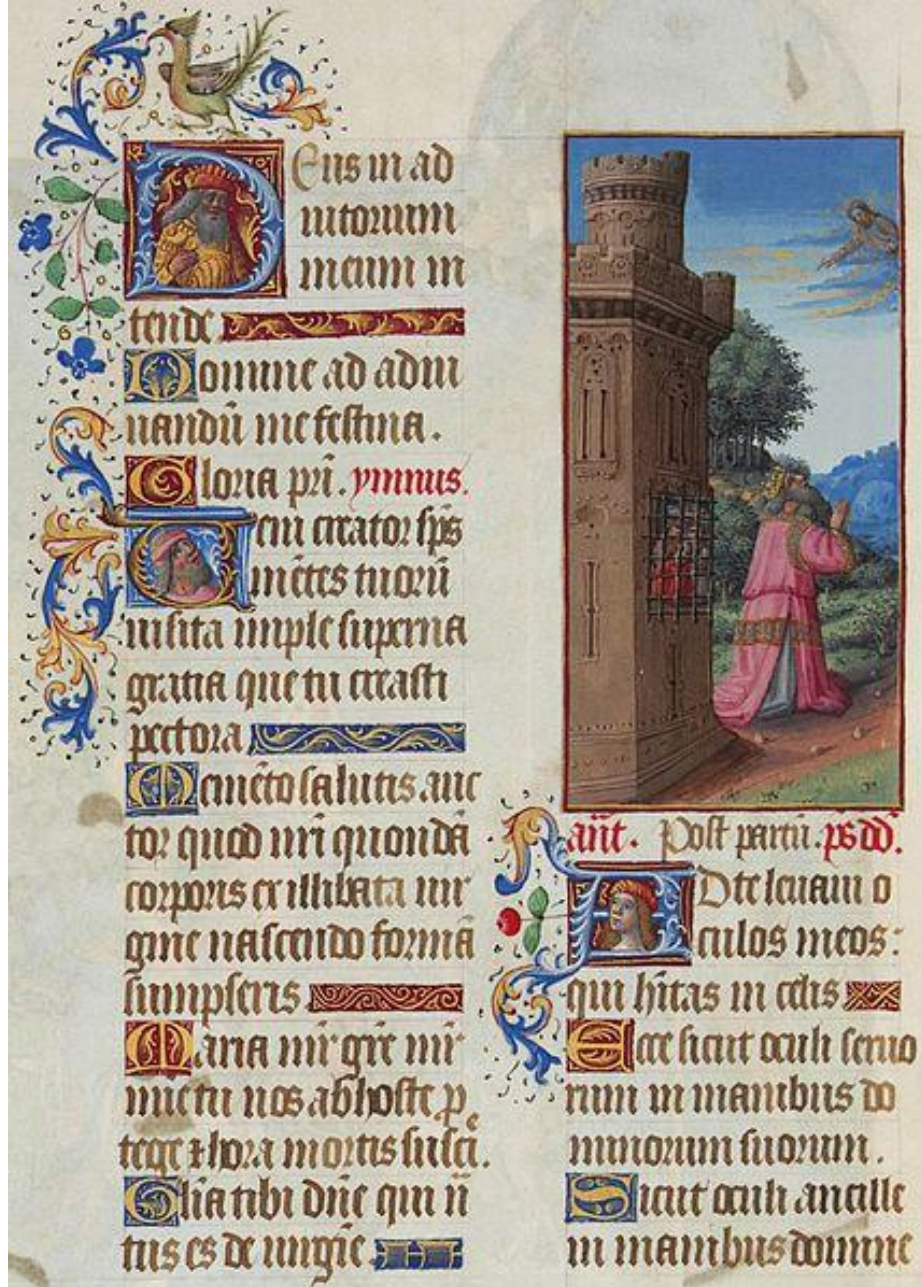 Deus in ad
iutorium
meum in
tende
Domine ad adiu
uandū me festina.
Gloria pr̄i. ymnus.
Veni creator sp̄s
mētes tuorū
uisita imple superna
gratia que tu creasti
pectora
Memēto salutis auc
tor quod nr̄i quondā
corporis ex illibata uir
gine nascendo formā
sumpseris
Maria uirgo mr̄
tu nos ab hoste p
tege & hora mortis susci.
Gl̄ia tibi dn̄e qui n̄
tus es de uirgīe
ant̄. Post partū. ps dd̄.
AD te leuaui o
culos meos:
qui h̄itas in celis
Ecce sicut oculi seruo
rum in manibus do
minorum suorum.
Sicut oculi ancille
in manibus domine